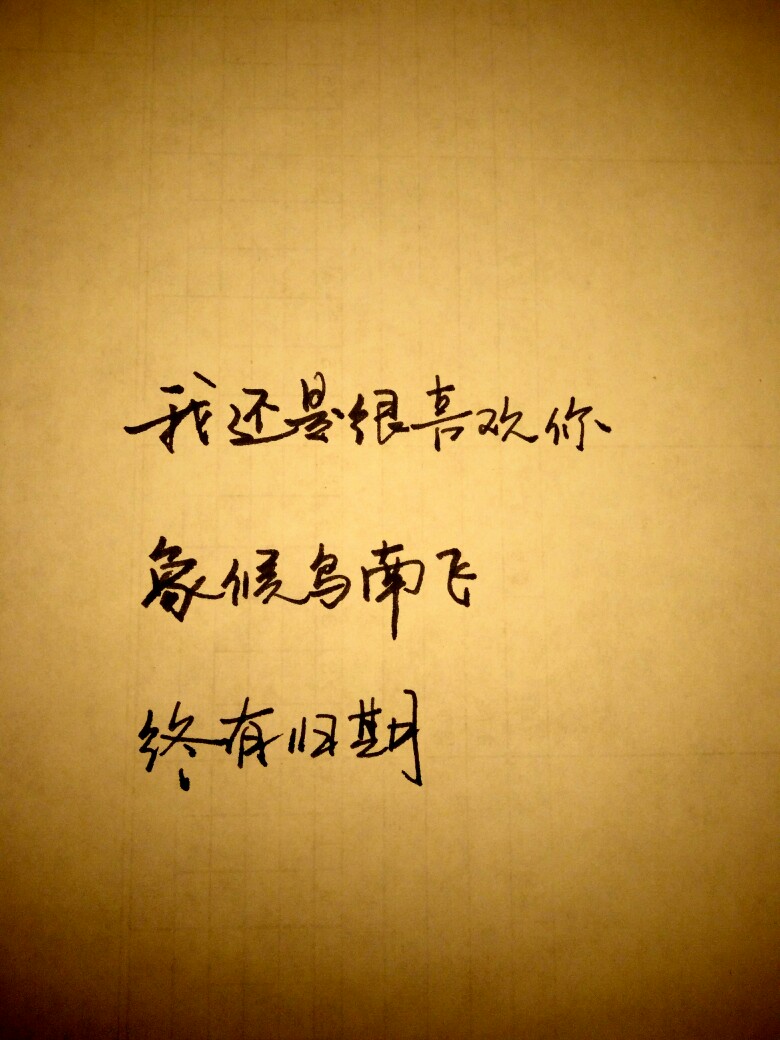 我还是很喜欢你
象候鸟南飞
终有归期